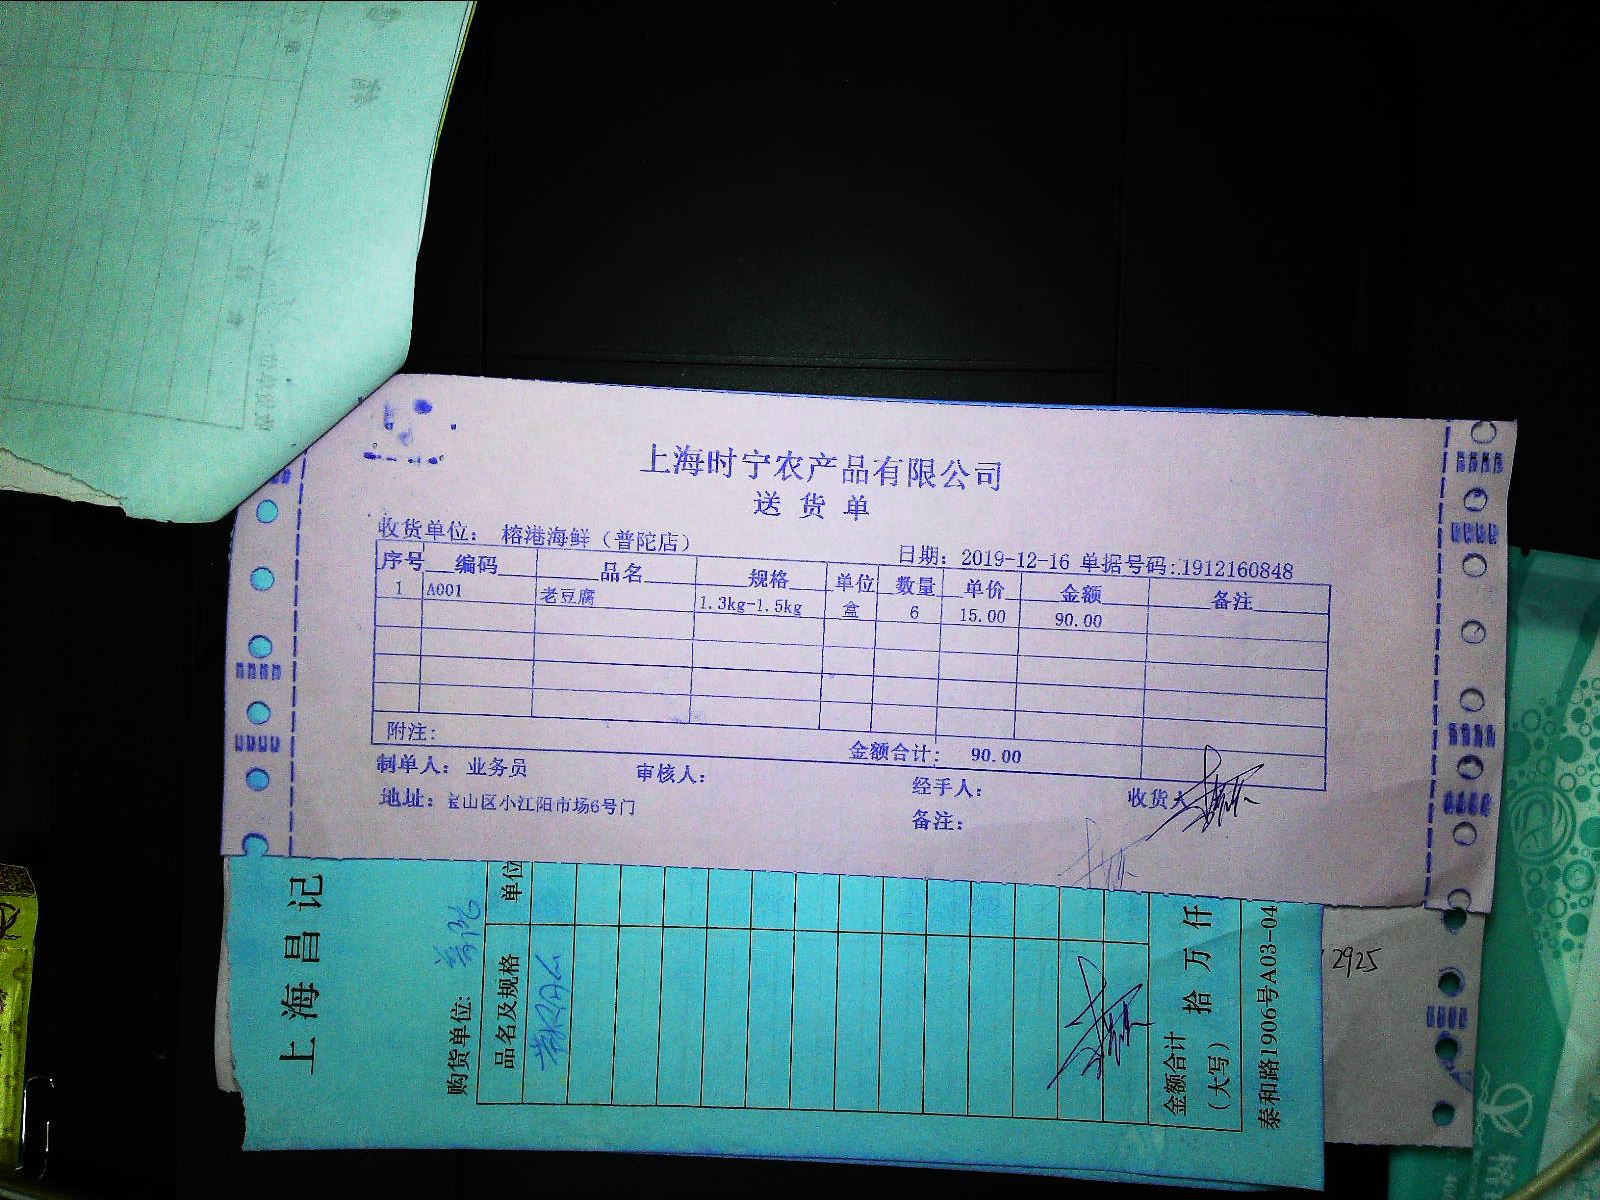 上海时宁农产品有限公司
送货单
收货单位： 榕港海鲜（普陀店）
日期：2019-12-16 单据号码:1912160848
序号 编码 品名 规格 单位 数量 单价 金额 备注
1 A001 老豆腐 1.3kg-1.5kg 盒 6 15.00 90.00
附注：
金额合计： 90.00
制单人： 业务员 审核人： 经手人： 收货人
地址：宝山区小江阳市场6号门
备注：
上海昌记
购货单位: 普陀
品名及规格 单位
金额合计（大写） 拾 万 仟
泰和路1906号A03-04
2925